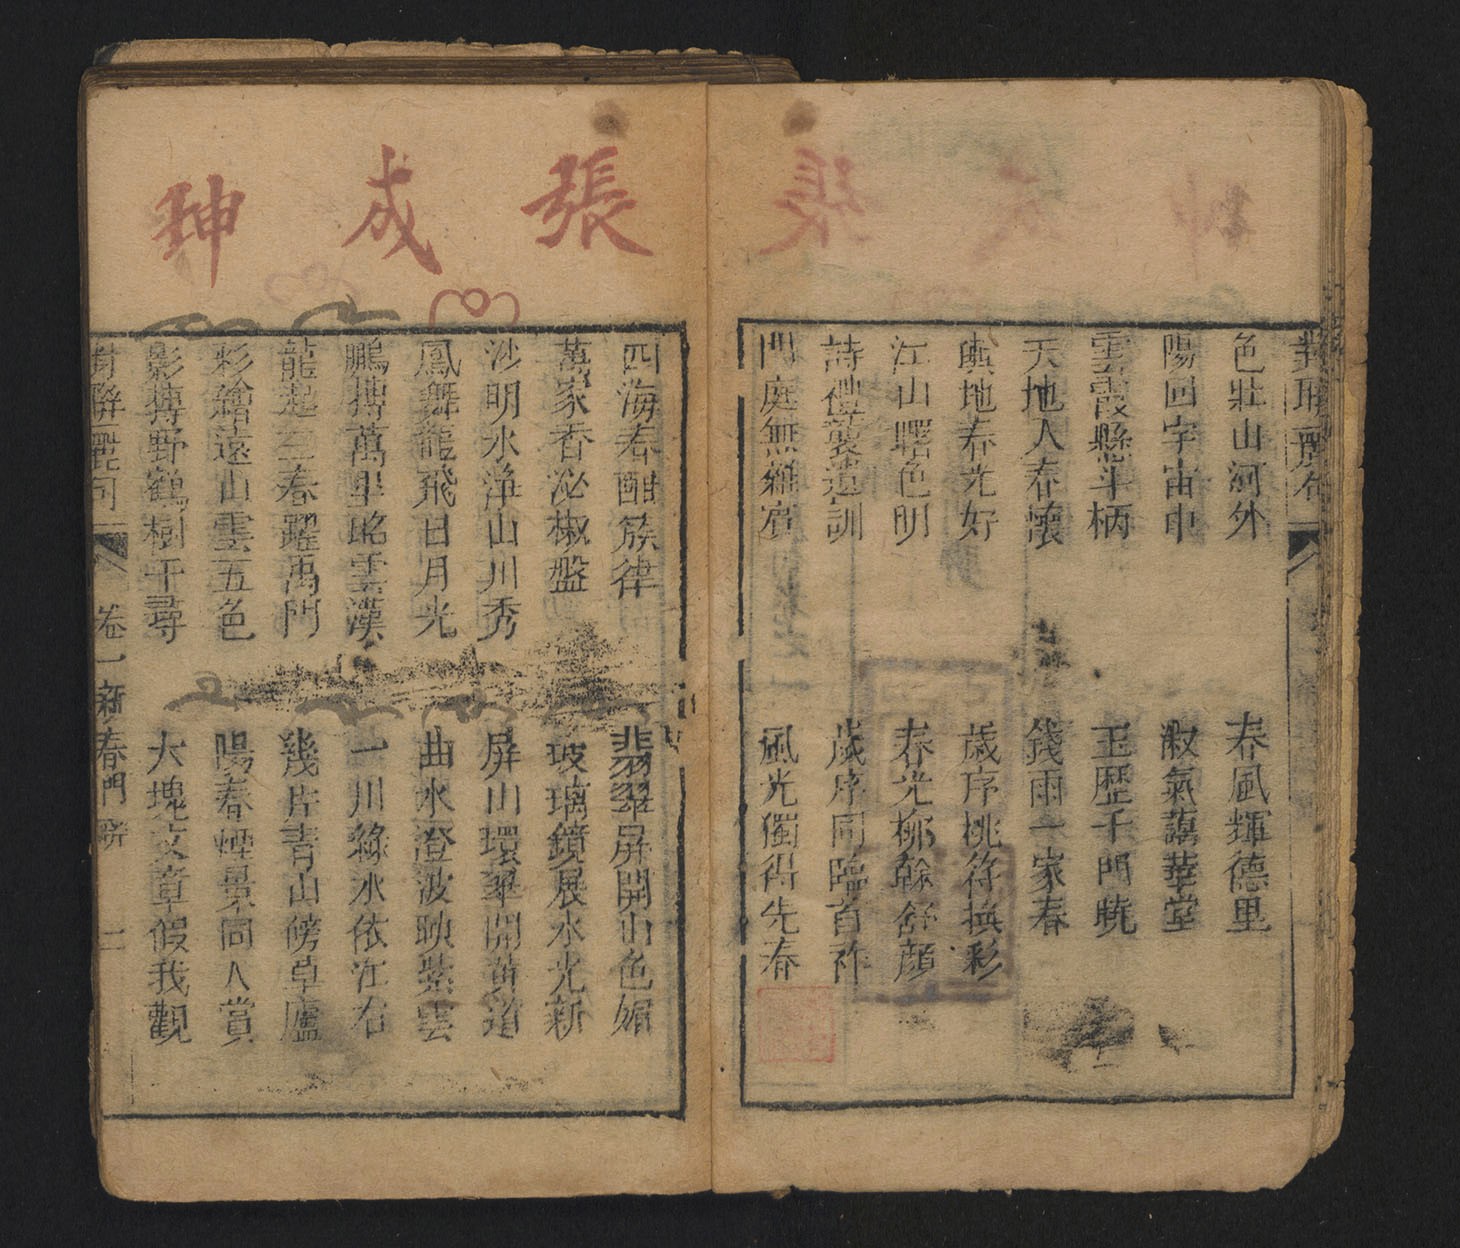 張成珅
色壯山河外 春風輝德里
陽回宇宙中 淑氣藹華堂
雲霞懸斗柄 玉歷千門曉
天地人春懷 錢雨一家春
輿地春光好 歲序桃符換彩
江山曙色明 春光柳幹舒顏
詩禮襲遺訓 歲序同臨首祚
門庭無雜賓 風光獨得先春
四海春酣簇律 翡翠屏開山色媚
萬家香泌椒盤 玻璃鏡展水光新
沙明水淨山川秀 屏山環翠開黃道
鳳舞龍飛日月光 曲水澄波映紫雲
鵬摶萬里路雲漢 一川綠水依江右
龍起三春躍禹門 幾片青山傍草廬
彩繪遠山雲五色 陽春煙景同人賞
影摶野鶴樹千尋 大塊文章假我觀
對聯麗句 卷一新春門聯 二